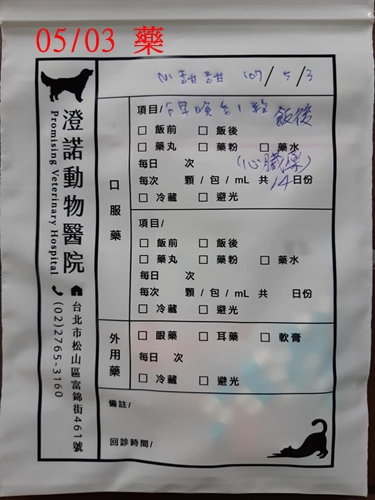 05/03 藥
小甜甜 107/5/3
澄諾動物醫院
Promising Veterinary Hospital
台北市松山區富錦街461號
(02)2765-3160
口服藥
項目/ 早晚各1粒 飯後
□ 飯前 □ 飯後
□ 藥丸 □ 藥粉 □ 藥水
(心臟藥)
每日 次
每次 顆 / 包 / mL 共 14 日份
□ 冷藏 □ 避光
項目/
□ 飯前 □ 飯後
□ 藥丸 □ 藥粉 □ 藥水
每日 次
每次 顆 / 包 / mL 共 日份
□ 冷藏 □ 避光
外用藥
□ 眼藥 □ 耳藥 □ 軟膏
每日 次
□ 冷藏 □ 避光
備註/
回診時間/